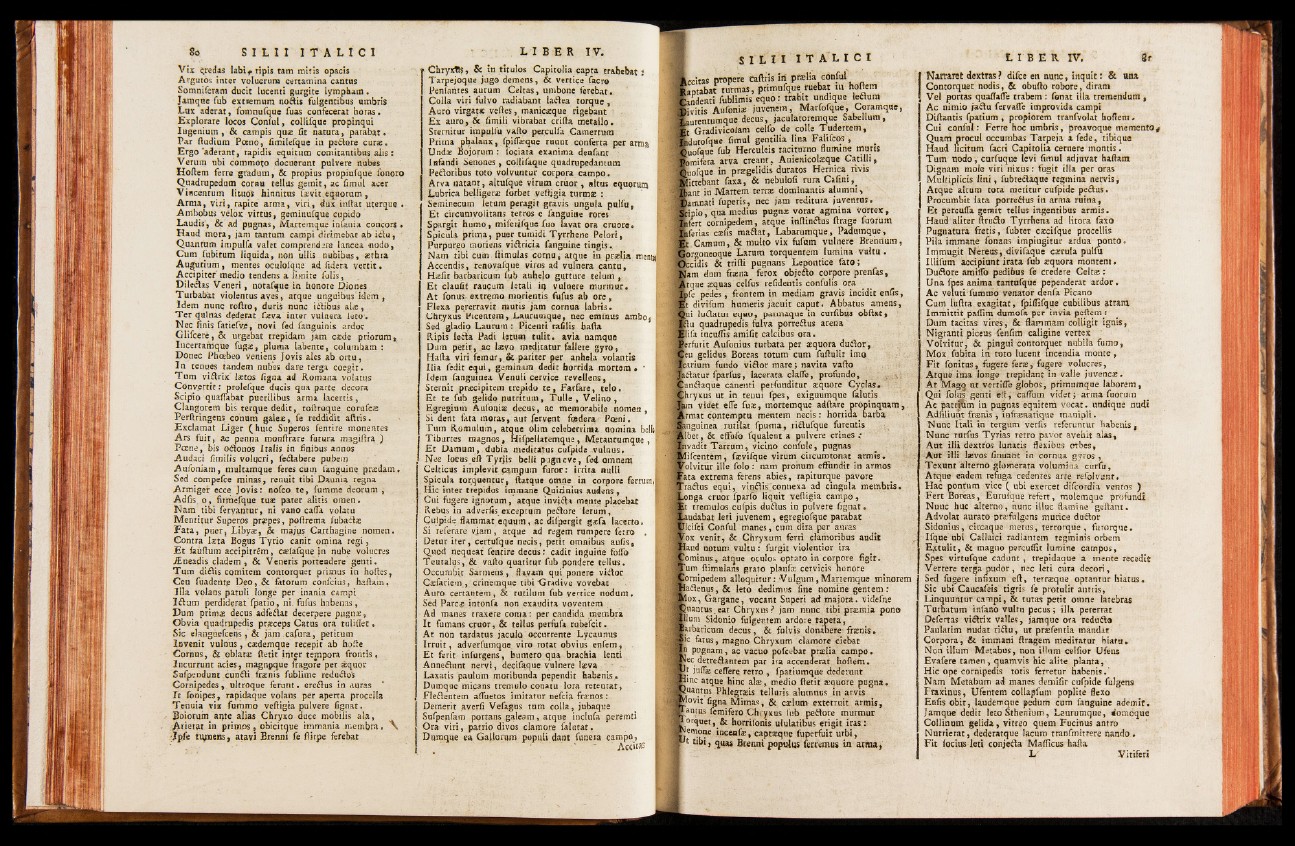 80 SILII ITALICI
Vix credas labi, ripis tam mitis opacis
Argutos inter volucrum certamina cantus
Somniferam ducit lucenti gurgite lympham.
Jamque sub extremum noctis fulgentibus umbris
Lux aderat, somnusque suas confecerat horas.
Explorare locos Consul, collisque propinqui
Ingenium, & campis quæ sit natura, parabat.
Par studium Pœno, similesque in pectore curæ.
Ergo aderant, rapidis equitum comitantibus alis:
Verum ubi commoto docuerunt pulvere nubes
Hostem ferre gradum, & propius propiusque sonoro
Quadrupedum cornu tellus gemit, ac simul acer
Vincentum lituos hinnitus sævit equorum,
Arma, viri, rapite arma, viri, dux instat uterque.
Ambobus velox virtus, geminusque cupido
Laudis, & ad pugnas, Martemque insania concors.
Haud mora, jam tantum campi dirimebat ab ictu,
Quantum impulsa valet comprendere lancea nodo,
Cum subitum liquida, non ullis nubibus, æthra
Augurium, mentes oculosque ad sidera vertit.
Accipiter medio tendens a limite solis,
Dilectas Veneri, notasque in honore Diones
Turbabat violentus aves, atque unguibus idem,
Idem nunc rostro, duris nunc ictibus alæ,
Ter quinas dederat sæva inter vulnera leto.
Nec finis satiesve, novi sed sanguinis ardor
Gliscere, & urgebat trepidam jam cæde priorum,
Incertamque fugæ, pluma labente, columbam:
Donec Phœbeo veniens Jovis ales ab ortu,
In tenues tandem nubes dare terga coegit.
Tum victrix lætos signa ad Romana volatus
Convertit: prolesque ducis qua parte decora
Scipio quassabat puerilibus arma lacertis,
Clangorem bis terque dedit, rostroque coruscæ
Perstringens conum galeæ, se reddidit astris.
Exclamat Liger (huic Superos sentire monentes
Ars fuit, ac penna monstrare futura magistra)
Pœne, bis octonos Italis in finibus annos
Audaci similis volucri, sectabere pubem
Ausoniam, multamque feres cum sanguine prædam.
Sed compesce minas, renuit tibi Daunia regna
Armiger ecce Jovis: nosco te, summe deorum,
Adsis o, firmesque tuæ pater alitis omen.
Nam tibi servantur, ni vano cassa volatu
Mentitur Superos præpes, postrema subactæ
Fata, puer, Libyæ, & majus Carthagine nomen.
Contra læta Bogus Tyrio canit omina regi,
Et faustum accipitrém, cæsasque in nube volucres
Æneadis cladem, & Veneris portendere genti.
Tum dictis comitem contorquet primus in hostes,
Ceu suadente Deo, & fatorum conscius, hastam.
Illa volans patuli longe per inania campi
Ictum perdiderat spatio, ni fusus habenas,
Dum primæ decus adfectat decerpere pugnæ,
Obvia quadrupedis præceps Catus ora tulisset.
Sic elanguescens, & jam casura, petitum
Invenit vulnus, cædemque recepit ab hoste
Cornus, & oblatæ stetit inter tempora frontis.
Incurrunt acies, magnoque fragore per æquor
Suspendunt cuncti frænis sublime reductos
Cornipedes, ultroque ferunt. erectus in auras
It sonipes, rapidaque volans per aperta procella
Tenuia vix summo vestigia pulvere signat.
Boiorum ante alias Chryxo duce mobilis ala,
Arietat in primos, objicitque immania membra.
Ipse tumens, atavi Brenni se stirpe ferebat
LIBER IV.
Chryxus, & in titulos Capitolia capta trahebat:
Tarpejoque jugo demens, & vertice sacro
Pensantes aurum Celtas, umbone ferebat.
Colla viri fulvo radiabant lactea torque,
Auro virgatæ vestes, manicæque rigebant
Ex auro, & simili vibrabat crista metallo.
Sternitur impulsu vasto perculsa Camertum
Prima phalanx, spissæque ruunt conferta per arma
Undæ Bojorum: sociata examina densant
Infandi Senones, collisaque quadrupedantum
Pectoribus toto volvuntur corpora campo.
Arva natant, altusque virum cruor, altus equorum
Lubrica belligeræ sorbet vestigia turmæ:
Seminecum letum peragit gravis ungula pulsu,
Et circumvolitans tetros e sanguine rores
Spargit humo, miserisque suo lavat ora cruore.
Spicula prima, puer tumidi Tyrrhene Pelori,
Purpureo moriens victricia sanguine tingis.
Nam tibi cum stimulas cornu, atque in prælia mentes
Accendis, renovasque viros ad vulnera cantu,
Hæsit barbaricum sub anhelo gutture telum,
Et clausit raucum letali in vulnere murmur.
At sonus extremo morientis fusus ab ore,
Flexa pererravit mutis jam cornua labris.
Chryxus Picentem, Laurumque, nec eminus ambo,
Sed gladio Laurum: Picenti rasilis hasta
Ripis lecta Padi letum tulit. avia namque
Dum petit, ac lævo meditatur fallere gyro,
Hasta viri femur, & pariter per anhela volantis
Ilia sedit equi, geminam dedit horrida mortem.
Idem sanguinea Venuli cervice revellens,
Sternit præcipitem trepido te, Farfare, telo.
Et te sub gelido nutritum, Tulle, Velino,
Egregium Ausoniæ decus, ac memorabile nomen,
Si dent fata moras, aut servent fœdera Pœni.
Tum Romulum, atque olim celeberrima nomina bello
Tiburtes magnos, Hispellatemque, Metaurumque,
Et Damum, dubia meditatus cuspide vulnus.
Nec locus est Tyriis belli pugnæve, sed omnem
Celticus implevit campum furor: irrita nulli
Spicula torquentur, statque omne in corpore ferrum.
Hic inter trepidos immane Quirinius audens,
Cui fugere ignotum, atque invicta mente placebat
Rebus in adversis exceptum pectore letum,
Cuspide flammat equum, ac dispergit gæsa lacerto.
Si reserare viam, atque ad regem rumpere ferro
Detur iter, certusque necis, petit omnibus ausis,
Quod nequeat sentire decus: cadit inguine fosso
Teutalus, & vasto quatitur sub pondere tellus.
Occumbit Sarmens, flavam qui ponere victor
Cæsariem, crinemque tibi Gradive vovebat
Auro certantem, & rutilum sub vertice nodum.
Sed Parcæ intonsa non exaudita voventem
Ad manes traxere coma: per candida membra
It fumans cruor, & tellus perfusa rubescit.
At non tardatus jaculo occurrente Lycaunus
Irruit, adversumque viro rotat obvius ensem,
Et ferit insurgens, humero qua brachia lenti
Annectunt nervi, decisaque vulnere læva
Laxatis paulum moribunda pependit habenis.
Dumque micans tremulo conatu lora retentat,
Flectentem assuetos imitatur nescia frænos:
Demerit averfi Vefagus tum colla, jubaque
Suspensum portans galeam, atque inclusa peremti
Ora viri, patrio divos clamore salutat.
Dumque ea Gallorum populi dant funera campo,
Accitas
SILII ITALICI
Accitas propere castris in prælia consul
Raptabat turmas, primusque ruebat in hostem
Candenti sublimis equo: trahit undique lectum
Divitis Ausoniæ juvenem, Marsosque, Coramque,
Laurentumque decus, jaculatoremque Sabellum,
Et Gradivicolam celso de colle Tudertem,
Indutosque simul gentilia lina Faliscos,
Quosque sub Herculeis taciturno flumine muris
Pomifera arva creant, Anienicolæque Catilli,
Quosque in prægelidis duratos Hernica rivis
Mittebant saxa, & nebulosi rura Casini,
Ibant in Martem terræ dominantis alumni,
Damnati superis, nec jam reditura juventus.
Scipio, qua medius pugnæ vorat agmina vortex,
Infert cornipedem, atque instinctus strage suorum
Inferias cæsis mactat, Labarumque, Padumque,
Et Camum, & multo vix fusum vulnere Breuñum,
Gorgoneoque Larum torquentem lumina vultu.
Occidis & tristi pugnax Lepontice fato;
Nam dum fræna ferox objecto corpore prensas,
Atque æquas celsus residentis consulis ora
Ipse pedes, frontem in mediam gravis incidit ensis,
Et divisum humeris jacuit caput. Abbatus amens,
Qui luctatur equo, parmaque in cursibus obstat,
Ictu quadrupedis fulva porrectus arena
Elisa incussis amisit calcibus ora.
Perfurit Ausonius turbata per æquora ductor,
Ceu gelidus Boreas totum cum sustulit imo
Icarium fundo victor mare; navita vasto
Jactatur sparsus, lacerata classe, profundo,
Canctaque canenti perfunditur æquore Cyclas.
Chryxus ut in tenui spes, exiguumque salutis
Jam videt esse suæ, mortemque adstare propinquam,
Armat contemptu mentem necis: horrida barba
Sanguinea rutilat spuma, rictusque furentis
Albet, & effuso squalent a pulvere crines.
Invadit Tarium, vicino consule, pugnas
Miscentem, sævisque virum circumtonat armis.
Volvitur ille solo: nam pronum effundit in armos
Fata extrema ferens abies, rapiturque pavore
Tractus equi, vinctis connexa ad cingula membris.
Longa cruor sparso liquit vestigia campo,
Et tremulos cuspis ductus in pulvere signat.
Laudabat leti juvenem, egregiosque parabat
Ulcisci Consul manes, cum dira per auras
Vox venit, & Chryxum ferri clamoribus audit
Haud notum vultu: surgit violentior ira
Cominus, atque oculos optato in corpore figit.
Tum stimulans grato plausæ cervicis honore
Cornipedem alloquitur: Vulgum, Martemque minorem
Hactenus, & leto dedimus sine nomine gentem:
Mox, Gargane, vocant Superi ad majora. videsne
Quantus eat Chryxus? jam nunc tibi præmia pono
Illum Sidonio fulgentem ardore tapeta,
Barbaricum decus, & fulvis donabere frænis.
Sic fatus, magno Chryxum clamore ciebat
In pugnam, ac vacuo poscebat prælia campo.
Nec detrectantem par ira accenderat hostem.
Ut jussæ cessere retro, spatiumque dederunt
Hinc atque hinc alæ, medio stetit æquore pugna.
Quantus Phlegræis telluris alumnus in arvis
Movit signa Mimas, & cælum exterruit armis,
Tantus semifero Chryxus sub pectore murmur
Torquet, & horrisonis ululatibus erigit iras:
Nemone incensæ, captæque superfuit urbi,
Ut tibi, quas Brenni populus ferremus in arma,
LIBER IV. 81
Narraret dextras? disce en nunc, inquit: & una
Contorquet nodis, & obusto robore, diram
Vel portas quassasse trabem: sonat illa tremendum,
Ac nimio jactu servasse improvida campi
Distantis spatium, propiorem transvolat hostem.
Cui consul: Ferre hoc umbris, proavoque memento,
Quam procul occumbas Tarpeia a sede, tibique
Haud licitum sacri Capitolia cernere montis.
Tum nodo, cursuque levi simul adjuvat hastam
Dignam mole viri nixus: fugit illa per oras
Multiplicis lini, subrectaque tegmina nervis,
Atque altum tota metitur cuspide pectus.
Procumbit lata porrectus in arma ruina,
Et percussa gemit tellus ingentibus armis.
Haud aliter structo Tyrrhena ad litora saxo
Pugnatura fretis, subter cæcisque procellis
Pila immane sonans impingitur ardua ponto.
Immugit Nereus, divisaque cærula pulsu
Illisum accipiunt irata sub æquora montem.
Ductore amisso pedibus se credere Celtæ:
Una spes anima tantusque pependerat ardor.
Ac veluti summo venator densa Picano
Cum lustra exagitat, spissisque cubilibus atram
Immittit passim dumosa per invia pestem:
Dum tacitas vires, & flammam colligit ignis,
Nigranti piceus sensim caligine vertex
Volvitur, & pingui contorquet nubila fumo,
Mox subita in toto lucent incendia monte,
Fit sonitus, fugere feræ, fugere volucres,
Atque ima longe trepidant in valle juvencæ.
At Mago ut vertisse globos, primumque laborem,
Qui solus genti est, cassum videt; arma suorum
Ac patrium in pugnas equitem vocat. undique nudi
Adsiliunt frænis, infrænatique manipli.
Nunc Itali in tergum versis referuntur habenis,
Nunc rursus Tyrias retro pavor avehit alas,
Aut illi dextros lunatis flexibus orbes,
Aut illi lævos sinuant in cornua gyros,
Texunt alterno glomerata volumina cursu,
Atque eadem refuga cedentes arte resolvunt.
Hac pontum vice (ubi exercet discordia ventos)
Fert Boreas, Eurusque refert, molemque profundi
Nunc huc alterno, nunc illuc flamine gestant.
Advolat aurato præfulgens murice ductor
Sidonius, circaque metus, terrorque, furorque.
Isque ubi Callaici radiantem tegminis orbem
Extulit, & magno percussit lumine campos,
Spes virtusque cadunt, trepidaque a mente recedit
Vertere terga pudor, nec leti cura decori,
Sed fugere infixum est, terræque optantur hiatus.
Sic ubi Caucaseis tigris se protulit antris,
Linquuntur campi, & tutas petit omne latebras
Turbatum insano vultu pecus; illa pererrat
Desertas victrix valles, jamque ora reducto
Paulatim nudat rictu, ut præsentia mandat
Corpora, & immani stragem meditatur hiatu.
Non illum Metabus, non illum celsior Ufens
Evasere tamen, quamvis hic alite planta,
Hic ope cornipedis totis ferretur habenis.
Nam Metabum ad manes demisit cuspide fulgens
Fraxinus, Ufentem collapsum poplite flexo
Ensis obit, laudemque pedum cum sanguine ademit.
Jamque dedit leto Sthenium, Laurumque, domoque
Collinum gelida, vitreo quem Fucinus antro
Nutrierat, dederatque lacum tranfmittere nando.
Fit socius leti conjecta Massicus hasta
L
Vitiferi